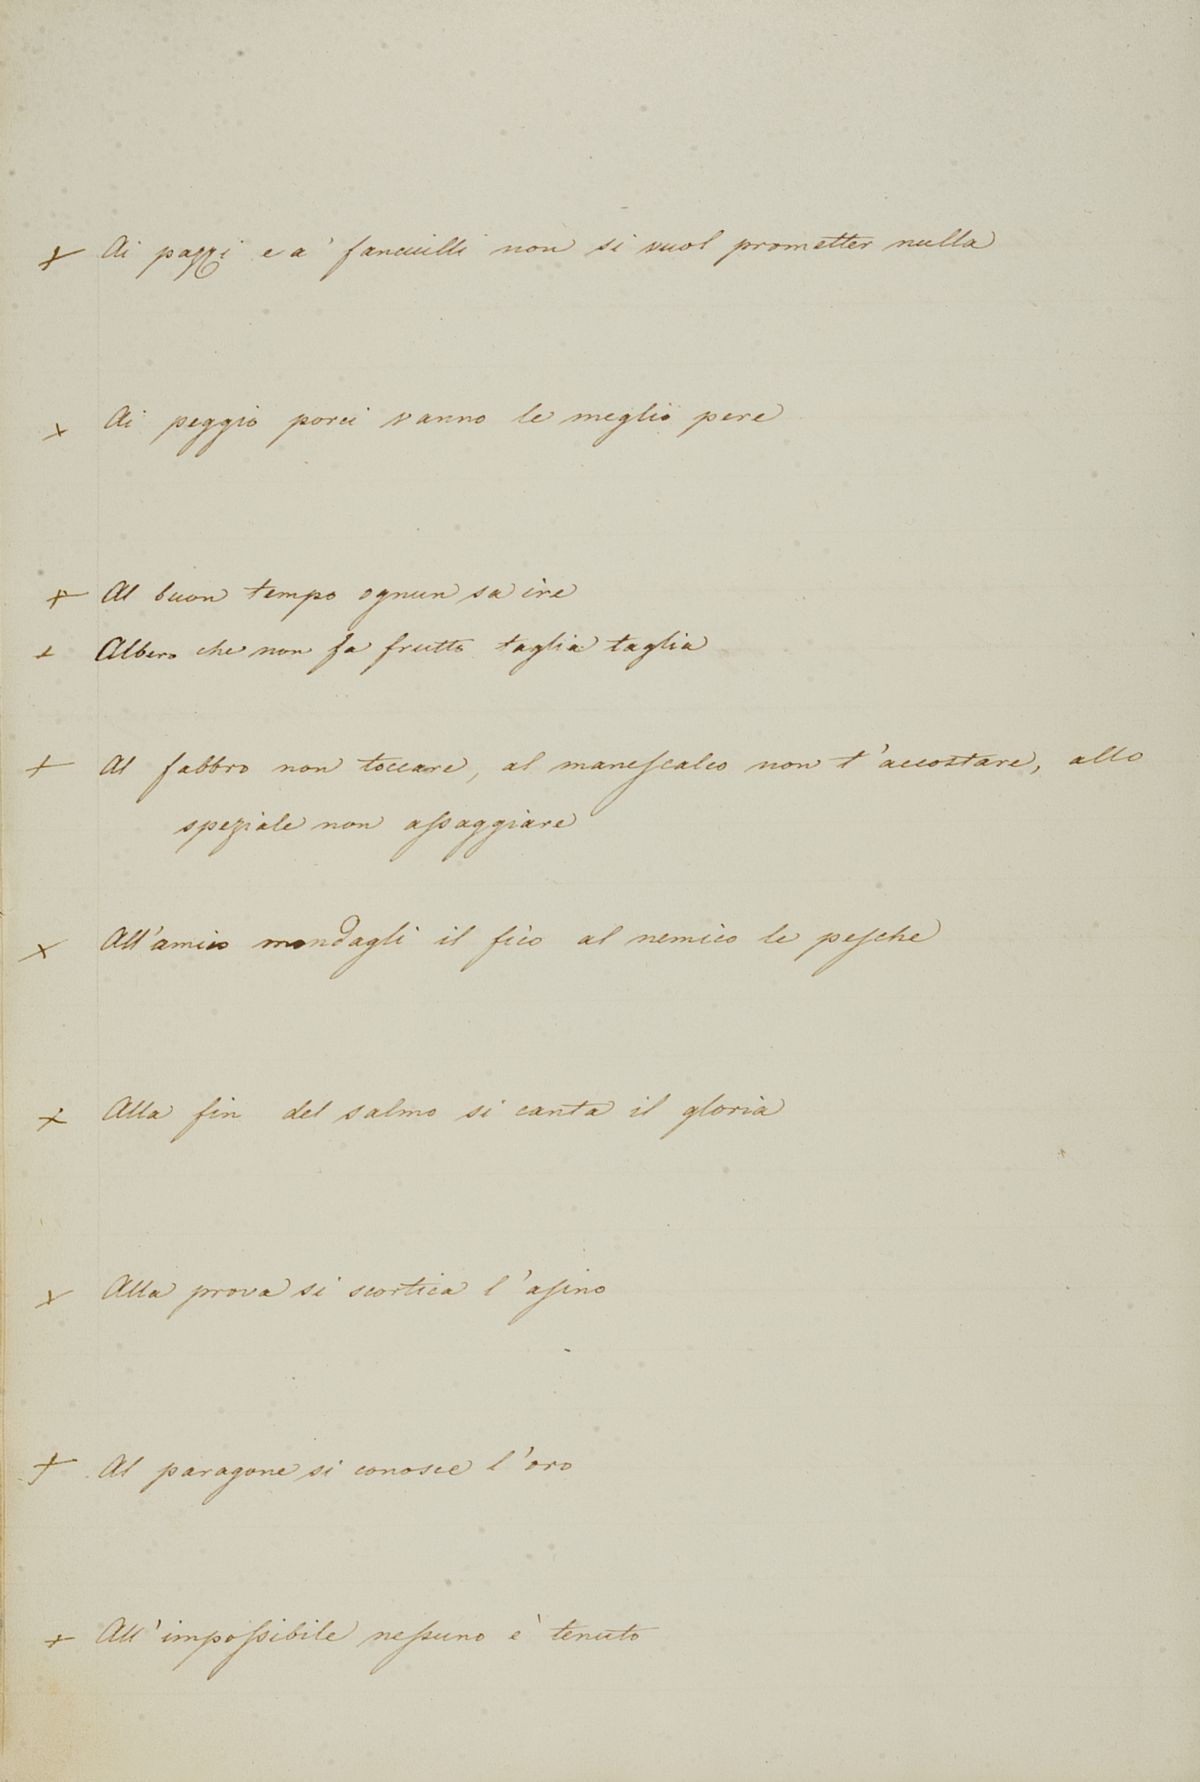 + Ai pazzi e a' fanciulli non si vuol prometter nulla
+ Ai peggio porci vanno le meglio pere
+ Al buon tempo ognun sa ire
+ Albero che non fa frutto taglia taglia
+ Al fabbro non toccare, al manescalco non t'accostare, allo
speziale non assaggiare
+ All'amico mondagli il fico al nemico le pesche
+ Alla fin del salmo si canta il gloria
+ Alla prova si scortica l'asino
+ Al paragone si conosce l'oro
+ All'impossibile nessuno è tenuto